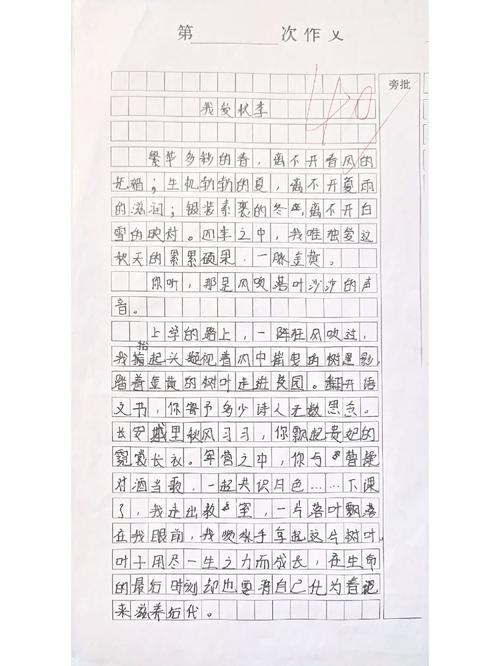 第 次作文
旁批
40
我爱秋季
繁华多秒的春，离不开春风的
抚措；生机勃勃的夏，离不开夏雨
的滋润；银装素裹的冬，离不开白
雪的映衬。四季之中，我唯独爱这
秋天的累累硕果，一脉金黄。
你听，那是风吹落叶沙沙的声
音。
上学的路上，一阵狂风吹过，
我抬起头凝视着风中摇曳的树
踏着金黄的树叶走进校园。翻开语
文书，你寄予多少诗人无数思念。
长安城里秋风习习，你飘起贵妃的
霓裳长衣。军营之中，你与曹操
对酒当歌，一起共识月色……下课
了，我走出教室，一片落叶飘落
在我眼前，我顺手拿起这片树叶
叶子用尽一生之力而成长，在生命
的最后时刻却也要将自己化为春泥
来滋养后代。